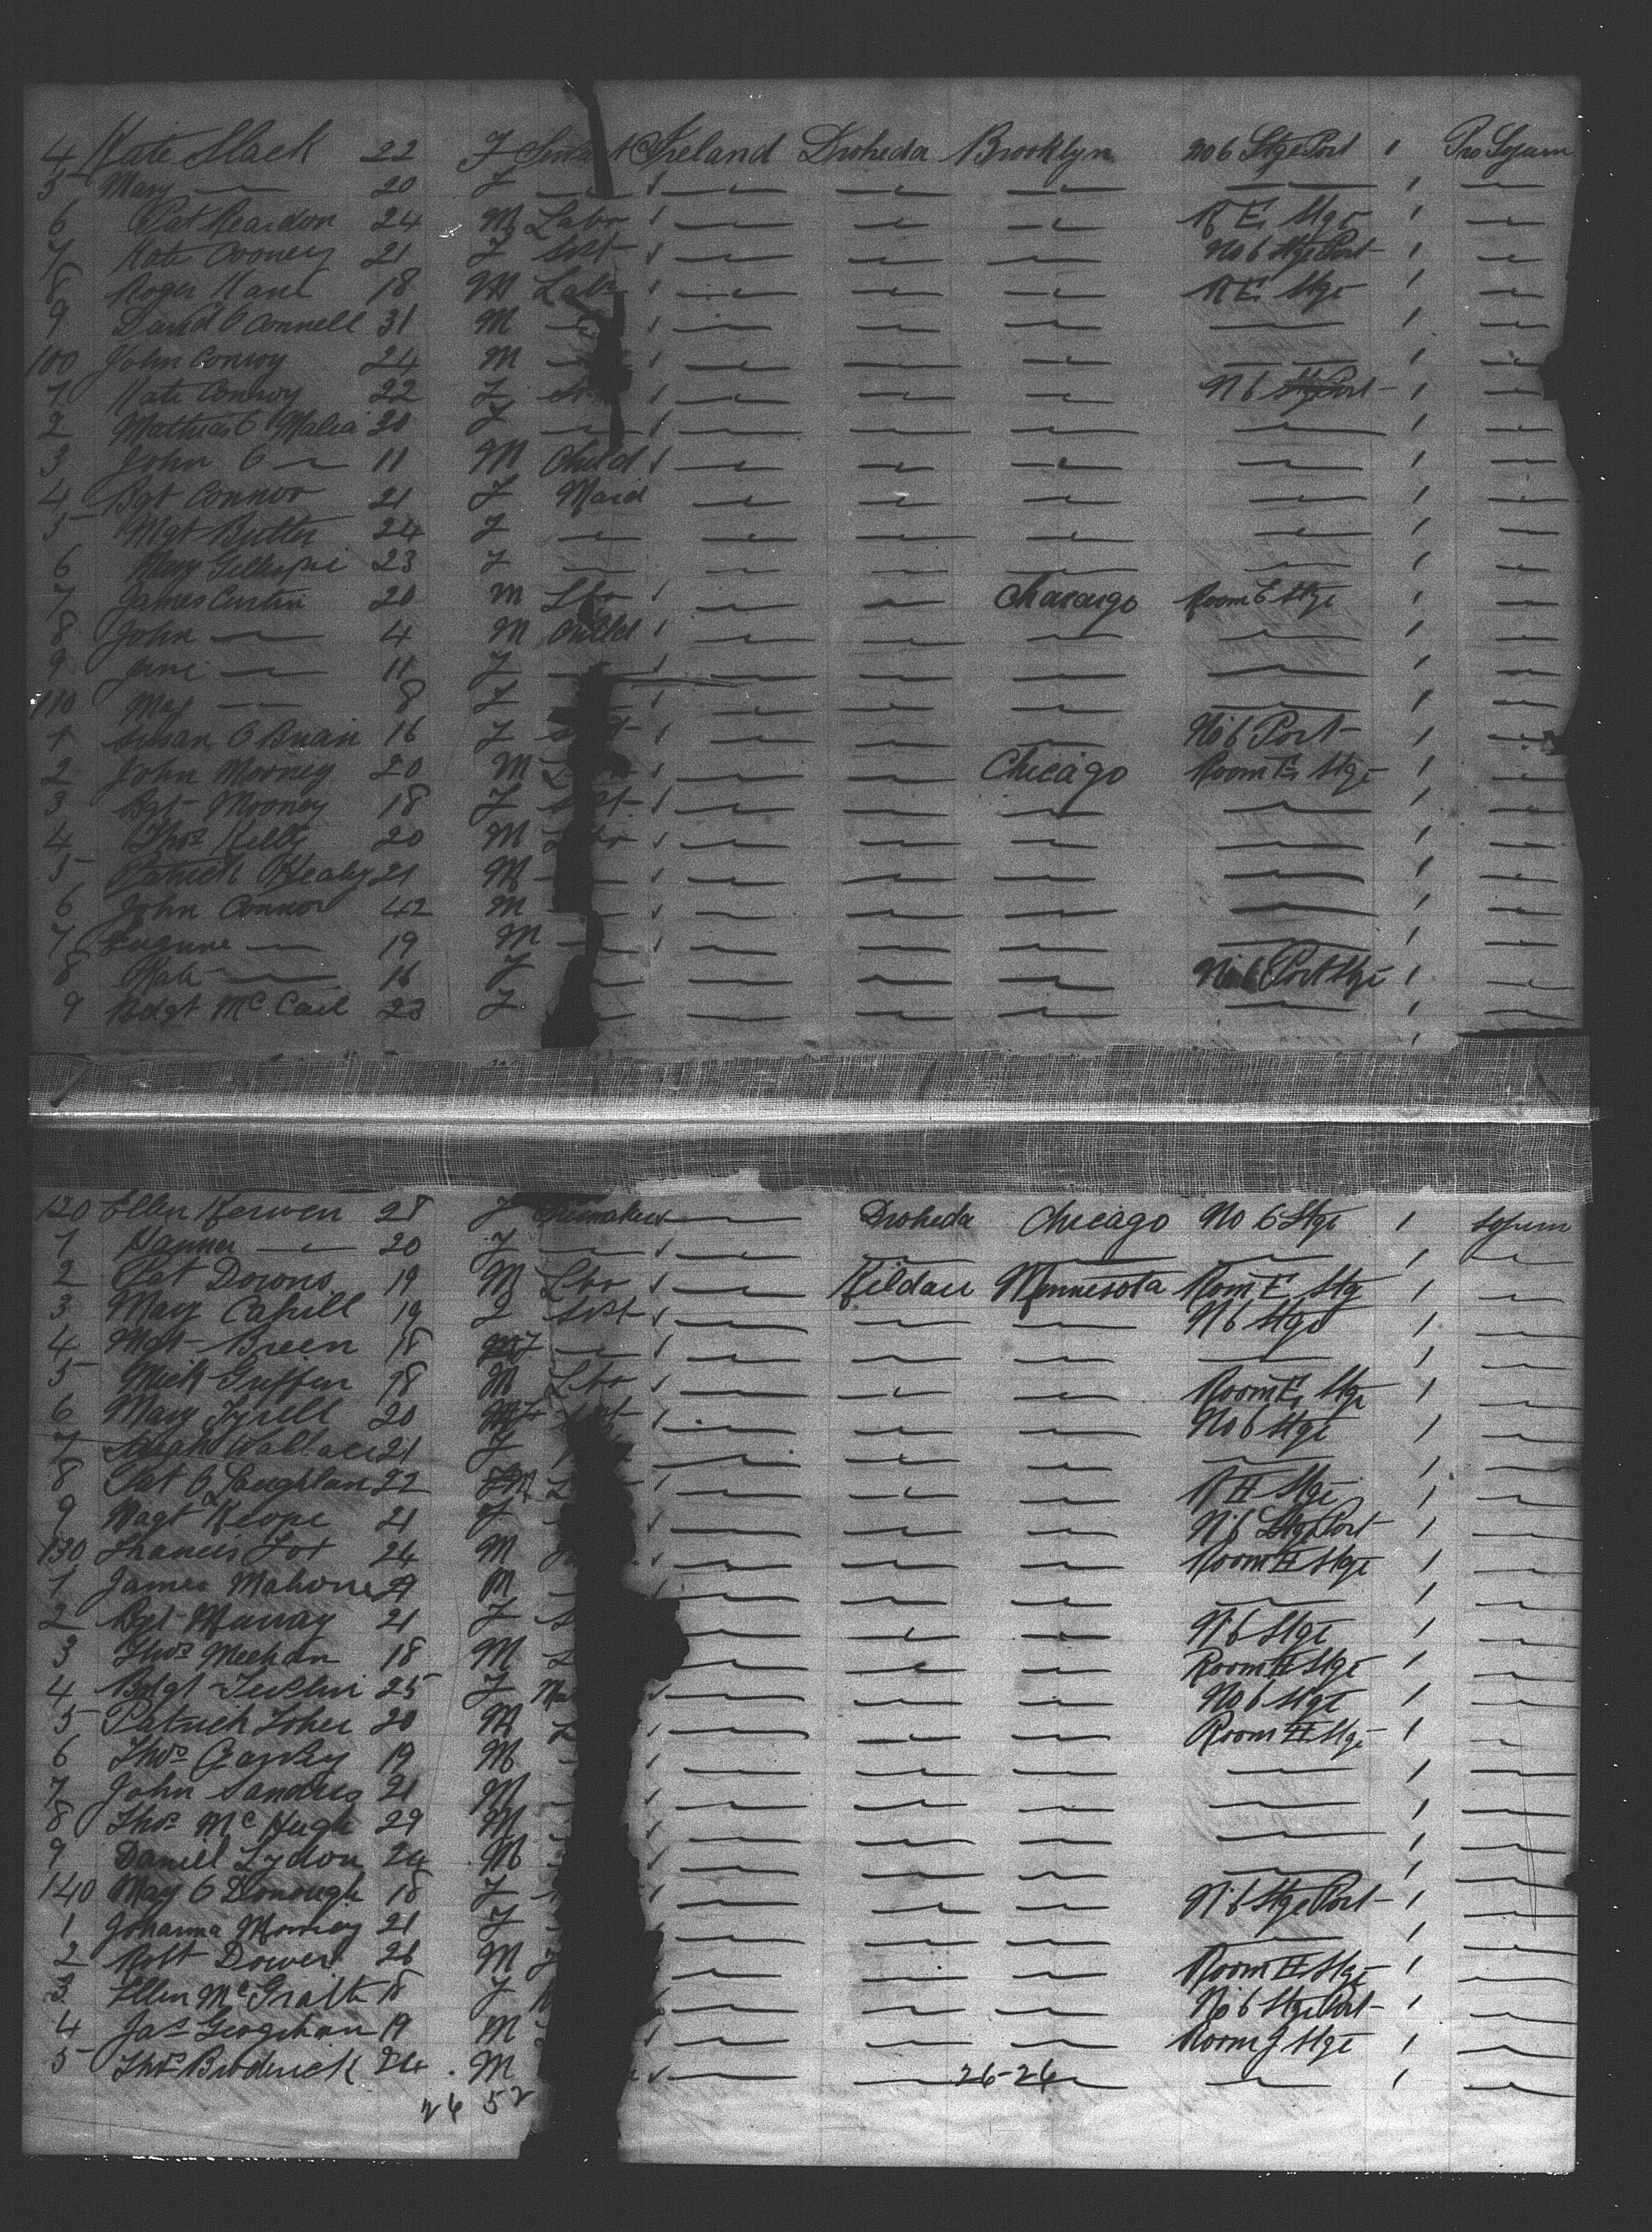 4 Kate Slack 22 F Servant Ireland Droheda Brooklyn No 6 Stge Port 1 Pro Sojurn
5 Mary — 20 F — — — — — 1 —
6 Pat Reardon 24 M Labr — — — R E Stge 1 —
7 Kate Cooney 21 F Svt — — — No 6 Stge Port 1 —
8 Roger Kane 18 M Labr — — — R E Stge 1 —
9 David O Connell 31 M — — — — — 1 —
100 John Conroy 24 M — — — — — 1 —
1 Kate Conroy 22 F — — — N 6 Stge Port 1 —
2 Mathias O Malia 30 F — — — — — 1 —
3 John O — 11 M Child — — — — 1 —
4 Bgt Connor 21 F Maid — — — — 1 —
5 Mgt Butter 24 F — — — — — 1 —
6 Mary Gillespie 23 F — — — — — 1 —
7 James Curtin 20 M Lbr — — Chacaigo Room E Stge 1 —
8 John — 4 M Child — — — — 1 —
9 Jane — 11 F — — — — — 1 —
110 May — 8 F — — — — — 1 —
1 Susan O Brian 16 F — — — No 6 Port 1 —
2 John Morney 20 M — — Chicago Room E Stge 1 —
3 Bgt Mooney 18 F Svt — — — — 1 —
4 Thos Kelly 20 M Lbr — — — — 1 —
5 Patrick Healy 21 M — — — — — 1 —
6 John Connor 42 M — — — — — 1 —
7 Eugune — 19 M — — — — — 1 —
8 Kate — 16 F — — — — No 6 Port Stge 1 —
9 Bdgt Mc Carl 23 F — — — — — 1 —
120 Ellen Kerwen 28 F — Droheda Chicago No 6 Stge 1 Sojurn
1 Hanner — 20 F — — — — — 1 —
2 Pat Downs 19 M Lbr — Kildare Minnesota Room E Stg 1 —
3 Mary Cahill 19 F Svt — — — N 6 Stge 1 —
4 Mgt Breen 18 F — — — — — 1 —
5 Mick Griffin 18 M Lbr — — — Room E Stge 1 —
6 Mary Tyrell 20 F — — — No 6 Stge 1 —
7 Wallace 21 F — — — — 1 —
8 Pat O Loughlan 22 M — — — R H Stge 1 —
9 Magt Keope 21 F — — — N 6 Stg Port 1 —
130 Francis Fox 24 M — — — Room H Stge 1 —
1 James Mahone M — — — — — 1 —
2 Bgt Murray 21 F — — — N 6 Stge 1 —
3 Thos Meehan 18 M — — — Room H Stge 1 —
4 Bdgt 25 F — — — No 6 Stge 1 —
5 Patrick Toher 20 M — — — Room H Stge 1 —
6 Thos 19 M — — — — — 1 —
7 John Sandres 21 M — — — — 1 —
8 Thos Mc Hugh 29 M — — — — 1 —
9 Daniel Lydon 24 M — — — — 1 —
140 May O Donough 18 F — — — N 6 Stge Port 1 —
1 Johanna Morney 21 F — — — — 1 —
2 Robt Dower 26 M — — — Room H Stge 1 —
3 Ellen Mc Grath 18 F — — — No 6 Stge Port 1 —
4 Jas Geoghan 19 M — — — Room J Stge 1 —
5 Thos Broderick 24 M — — 26-26 — — 1 —
26 52